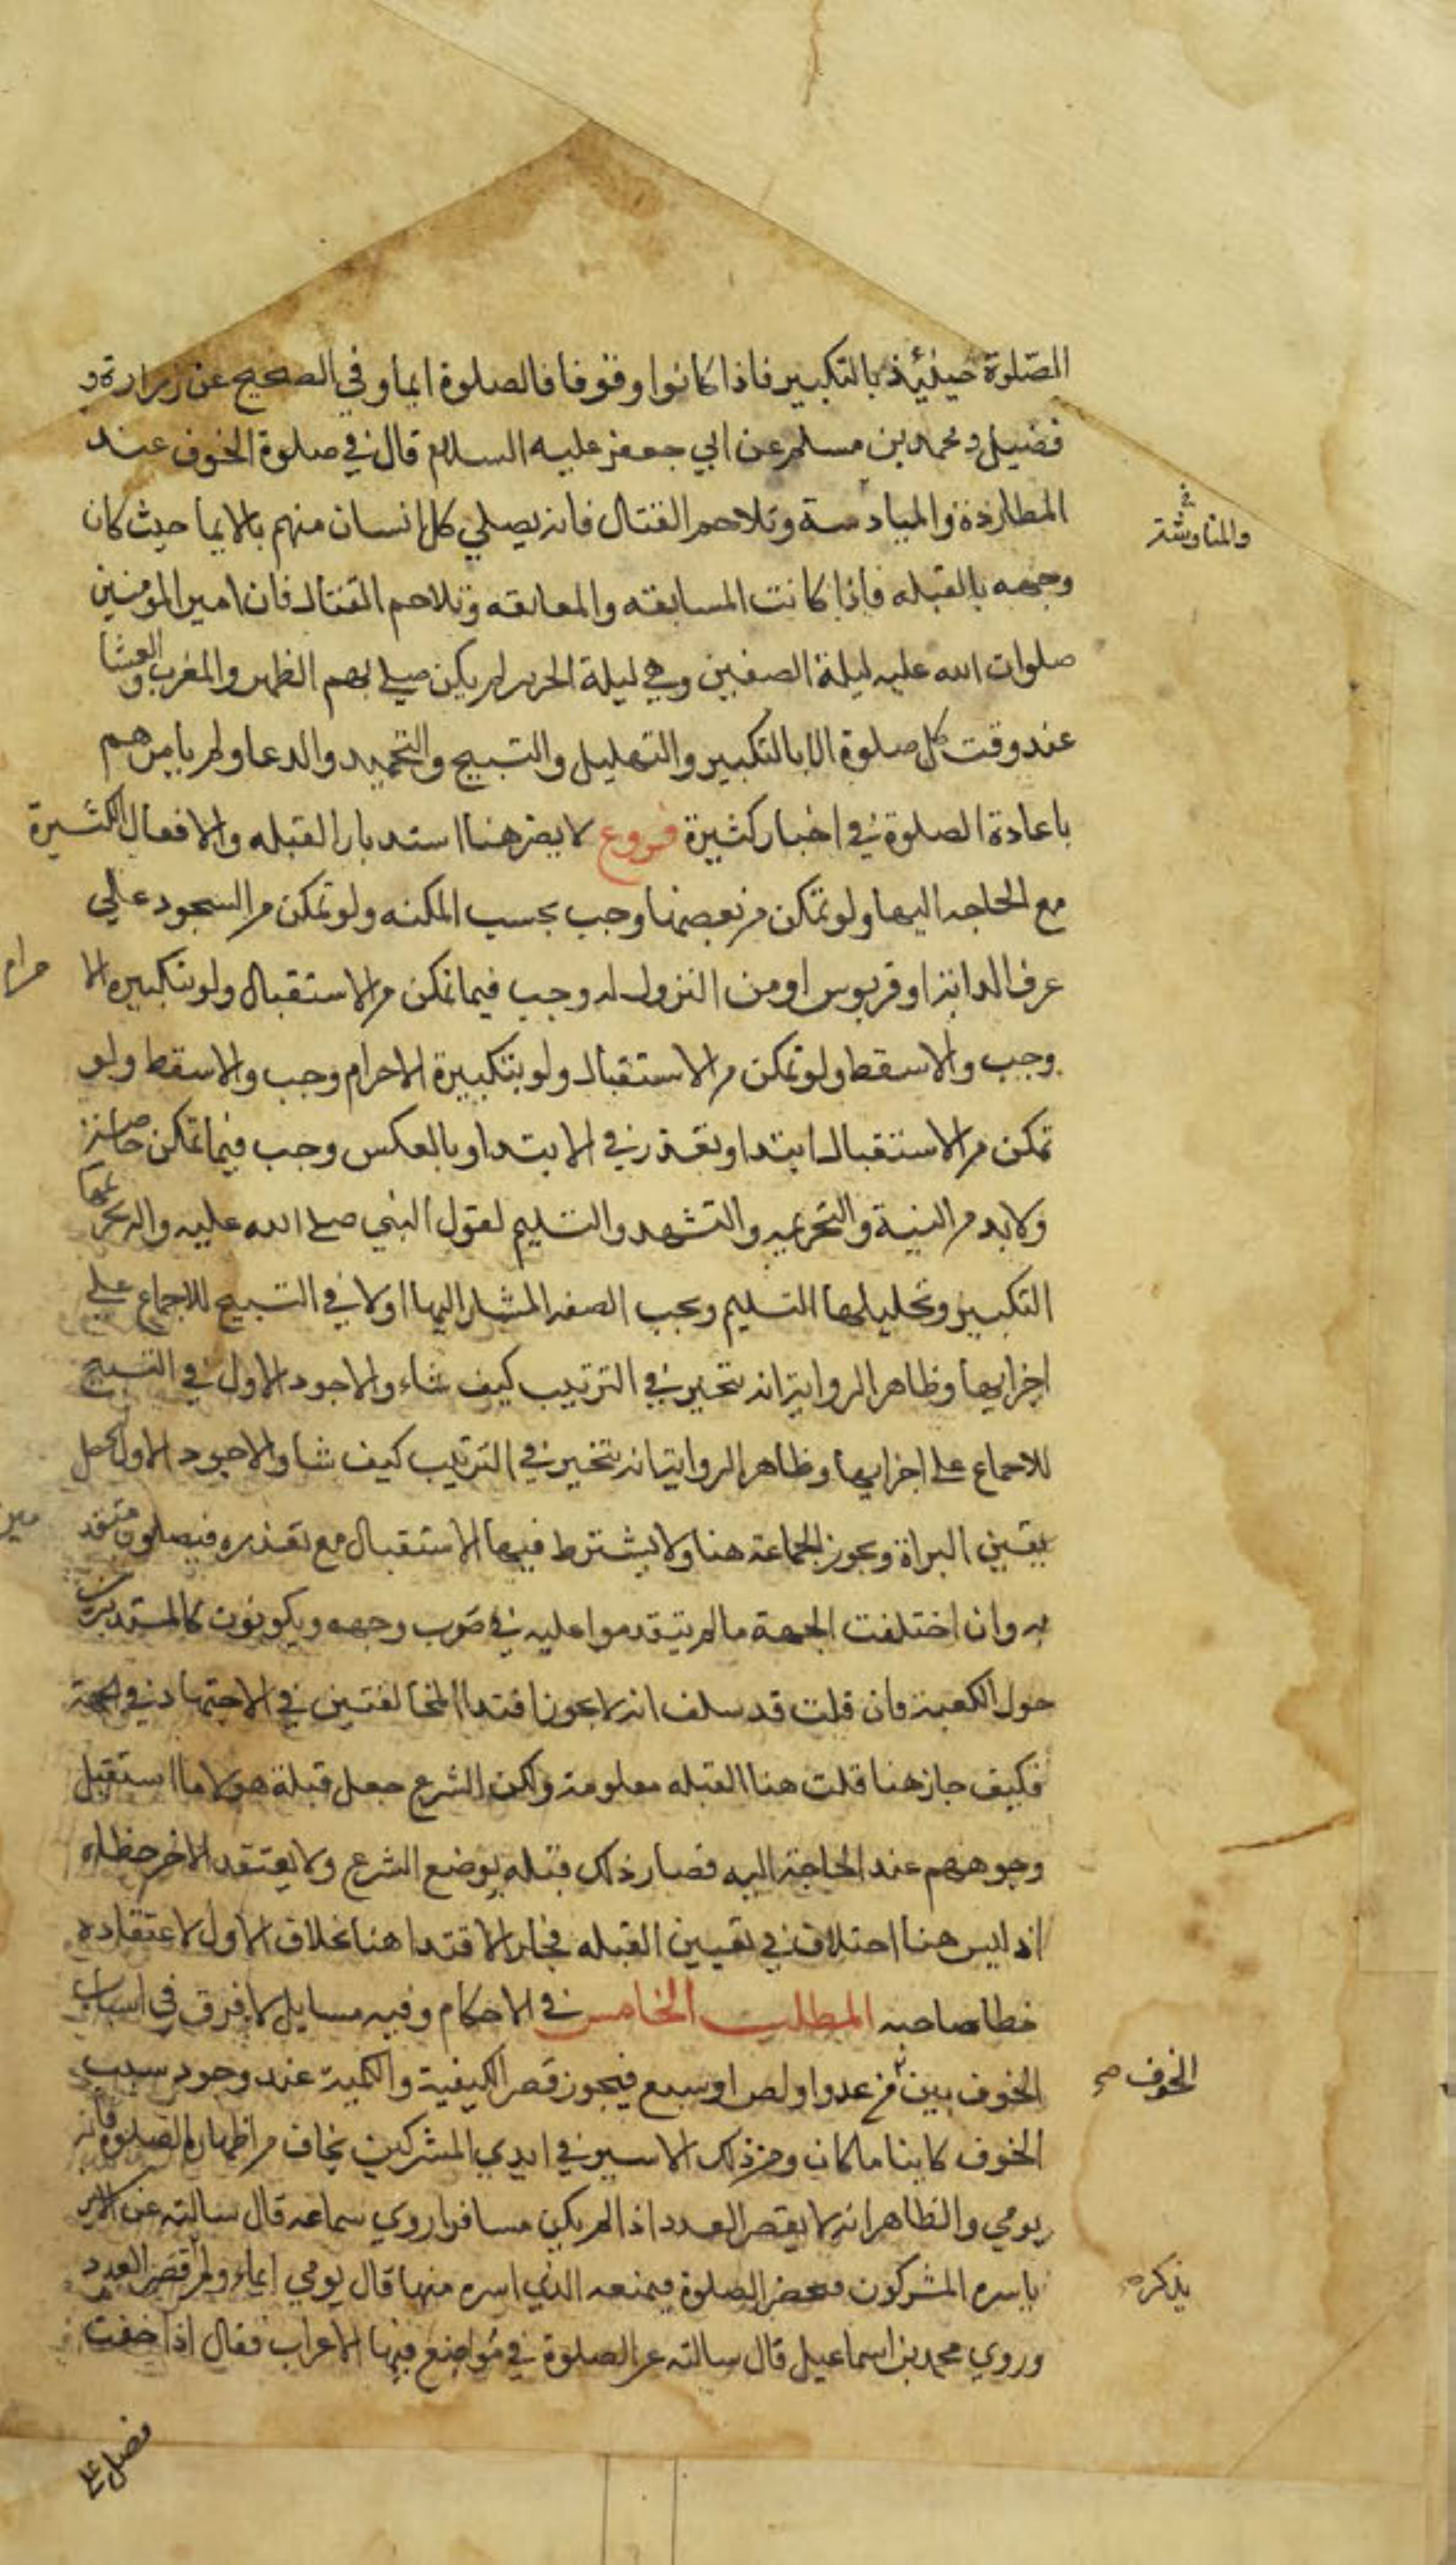 الصلوة حينئذ بالتكبير فاذا كانوا وقوفا فالصلوة ايما وفي الصحيح عن زرارة و
فضيل و محمد بن مسلم عن ابي جعفر عليه السلام قال في صلوة الخوف عند
المطاردة والمبادسة وتلاحم القتال فانه يصلي كل انسان منهم بالايما حيث كان
والمناوشة
وجهه بالقبله فاذا كانت المسايفه والمعانقه وتلاحم القتال فان امير المومنين
صلوات الله عليه ليلة الصفين وهي ليلة الحرير لم يكن صلى بهم الظهر والمغرب والعشا
عند وقت كل صلوة الا بالتكبير والتهليل والتسبيح والتحميد والدعا ولم يامرهم
باعادة الصلوة في اخبار كثيرة فروع لا يضر هنا استدبار القبله والافعال الكثيرة
مع الحاجه اليها ولو تمكن من بعضها وجب بحسب المكنه ولو تمكن من السجود علي
عرف الدابة او قربوس او من النزول له وجب فيما تمكن من الاستقبال ولو بتكبيره الا
حرام
وجب والا سقط ولو تمكن من الاستقبال ولو بتكبيرة الاحرام وجب والا سقط ولو
تمكن من الاستقبال ابتدا وتعذر في الابتدا وبالعكس وجب فيما تمكن خاصة
ولا بد من النية والتحريمه والتشهد والتسليم لقول النبي صلى الله عليه واله تحريمها
التكبير وتحليلها التسليم ويجب الصفه المشار اليها اولا في التسبيح للاجماع على
اجزايها وظاهر الرواية انه يتخير في الترتيب كيف شاء والاجود الاول في التسبيح
للاجماع على اجزايها وظاهر الرواية انه يتخير في الترتيب كيف شا والاجود الاول لتحصل
يقين البراة ويجوز الجماعة هنا ولا يشترط فيها الاستقبال مع تعذره فيصلون متقد
مين
به وان اختلفت الجهة ما لم يتقدموا عليه في صوب وجهه ويكونون كالمستديرين
حول الكعبة فان قلت قد سلف انه لا يجوز اقتدا المخالفتين في الاجتهاد في الجهة
فكيف جاز هنا قلت هنا القبله معلومة ولكن الشرع جعل قبلة هولا ما استقبل
وجوههم عند الحاجة اليه فصار ذلك قبله بوضع الشرع ولا يعتقد الاخر خطاه
اذ ليس هنا اختلاف في تعيين القبله فجاز الاقتدا هنا بخلاف الاول لاعتقاده
خطا صاحبه المطلب الخامس في الاحكام وفيه مسايل لا فرق في اسباب
الخوف بين من عدو او لص او سبع فيجوز قصر الكيفية والكمية عند وجود سبب
الخوف صح
الخوف كاينا ما كان ومن ذلك الاسير في ايدي المشركين يخاف من اظهاره الصلوة فانه
يومي والظاهر انه لا يقصر العدد اذا لم يكن مسافرا روي سماعه قال سالته عن الاسير
ياسره المشركون فتحضر الصلوة فيمنعه الذي اسره منها قال يومي ايماء ولم قصر العدد
يذكره
وروي محمد بن اسماعيل قال سالته عن الصلوة في مواضع فيها الاعراب فقال اذا خفت